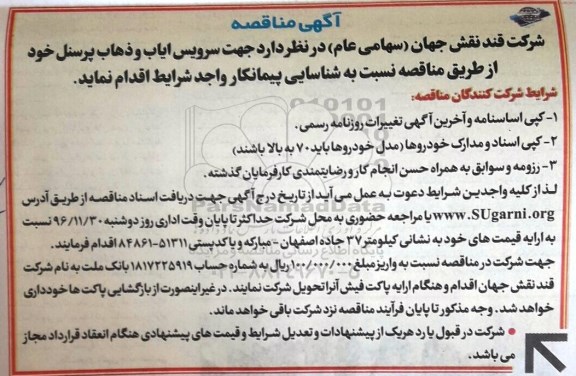 آگهی مناقصه
شرکت قند نقش جهان (سهامی عام) در نظر دارد جهت سرویس ایاب و ذهاب پرسنل خود
از طریق مناقصه نسبت به شناسایی پیمانکار واجد شرایط اقدام نماید.
شرایط شرکت کنندگان مناقصه:
۱- کپی اساسنامه و آخرین آگهی تغییرات روزنامه رسمی.
۲- کپی اسناد و مدارک خودروها (مدل خودروها باید ۷۰ به بالا باشند)
۳- رزومه و سوابق به همراه حسن انجام کار و رضایتمندی کارفرمایان گذشته.
لذا از کلیه واجدین شرایط دعوت به عمل می آید از تاریخ درج آگهی جهت دریافت اسناد مناقصه از طریق آدرس
www.SUgarni.org یا مراجعه حضوری به محل شرکت حداکثر تا پایان وقت اداری روز دوشنبه ۹۶/۱۱/۳۰ نسبت
به ارایه قیمت های خود به نشانی کیلومتر ۳۷ جاده اصفهان - مبارکه و یا کدپستی ۵۱۳۱۱-۸۴۸۶۱ اقدام فرمایند.
جهت شرکت در مناقصه نسبت به واریز مبلغ ۱۰۰/۰۰۰/۰۰۰ ریال به شماره حساب ۱۸۱۷۲۲۵۹۱۹ بانک ملت به نام شرکت
قند نقش جهان اقدام و هنگام ارایه پاکت فیش آنرا تحویل شرکت نمایند. در غیر اینصورت از بازگشایی پاکت ها خودداری
خواهد شد. وجه مذکور تا پایان فرآیند مناقصه نزد شرکت باقی خواهد ماند.
● شرکت در قبول یا رد هر یک از پیشنهادات و تعدیل شرایط و قیمت های پیشنهادی هنگام انعقاد قرارداد مجاز
می باشد.
ParsNamadData